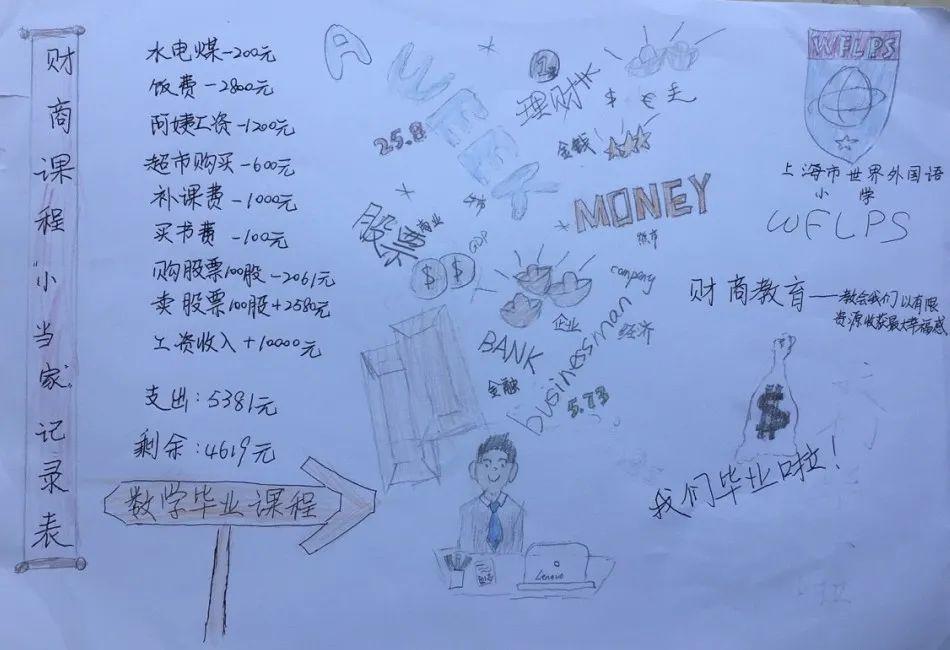 财商课程"小当家"记录表
水电煤-200元
饭费-2800元
阿姨工资-1200元
超市购买-600元
补课费-1000元
买书费 -100元
购股票100股-2061元
卖股票100股+2580元
工资收入+10000元
支出:5381元
剩余:4619元
数学毕业课程
A
WEEK
25.8
1
理财
$ € 
金钱
MONEY
股票
商业
GDP
$ $
company
企业
经济
businessman
BANK
金融
5.73
Lenovo
WFLPS
上海市世界外国语
小 学
WFLPS
财商教育——教会我们以有限
资源收获最大幸福感
$
我们毕业啦!